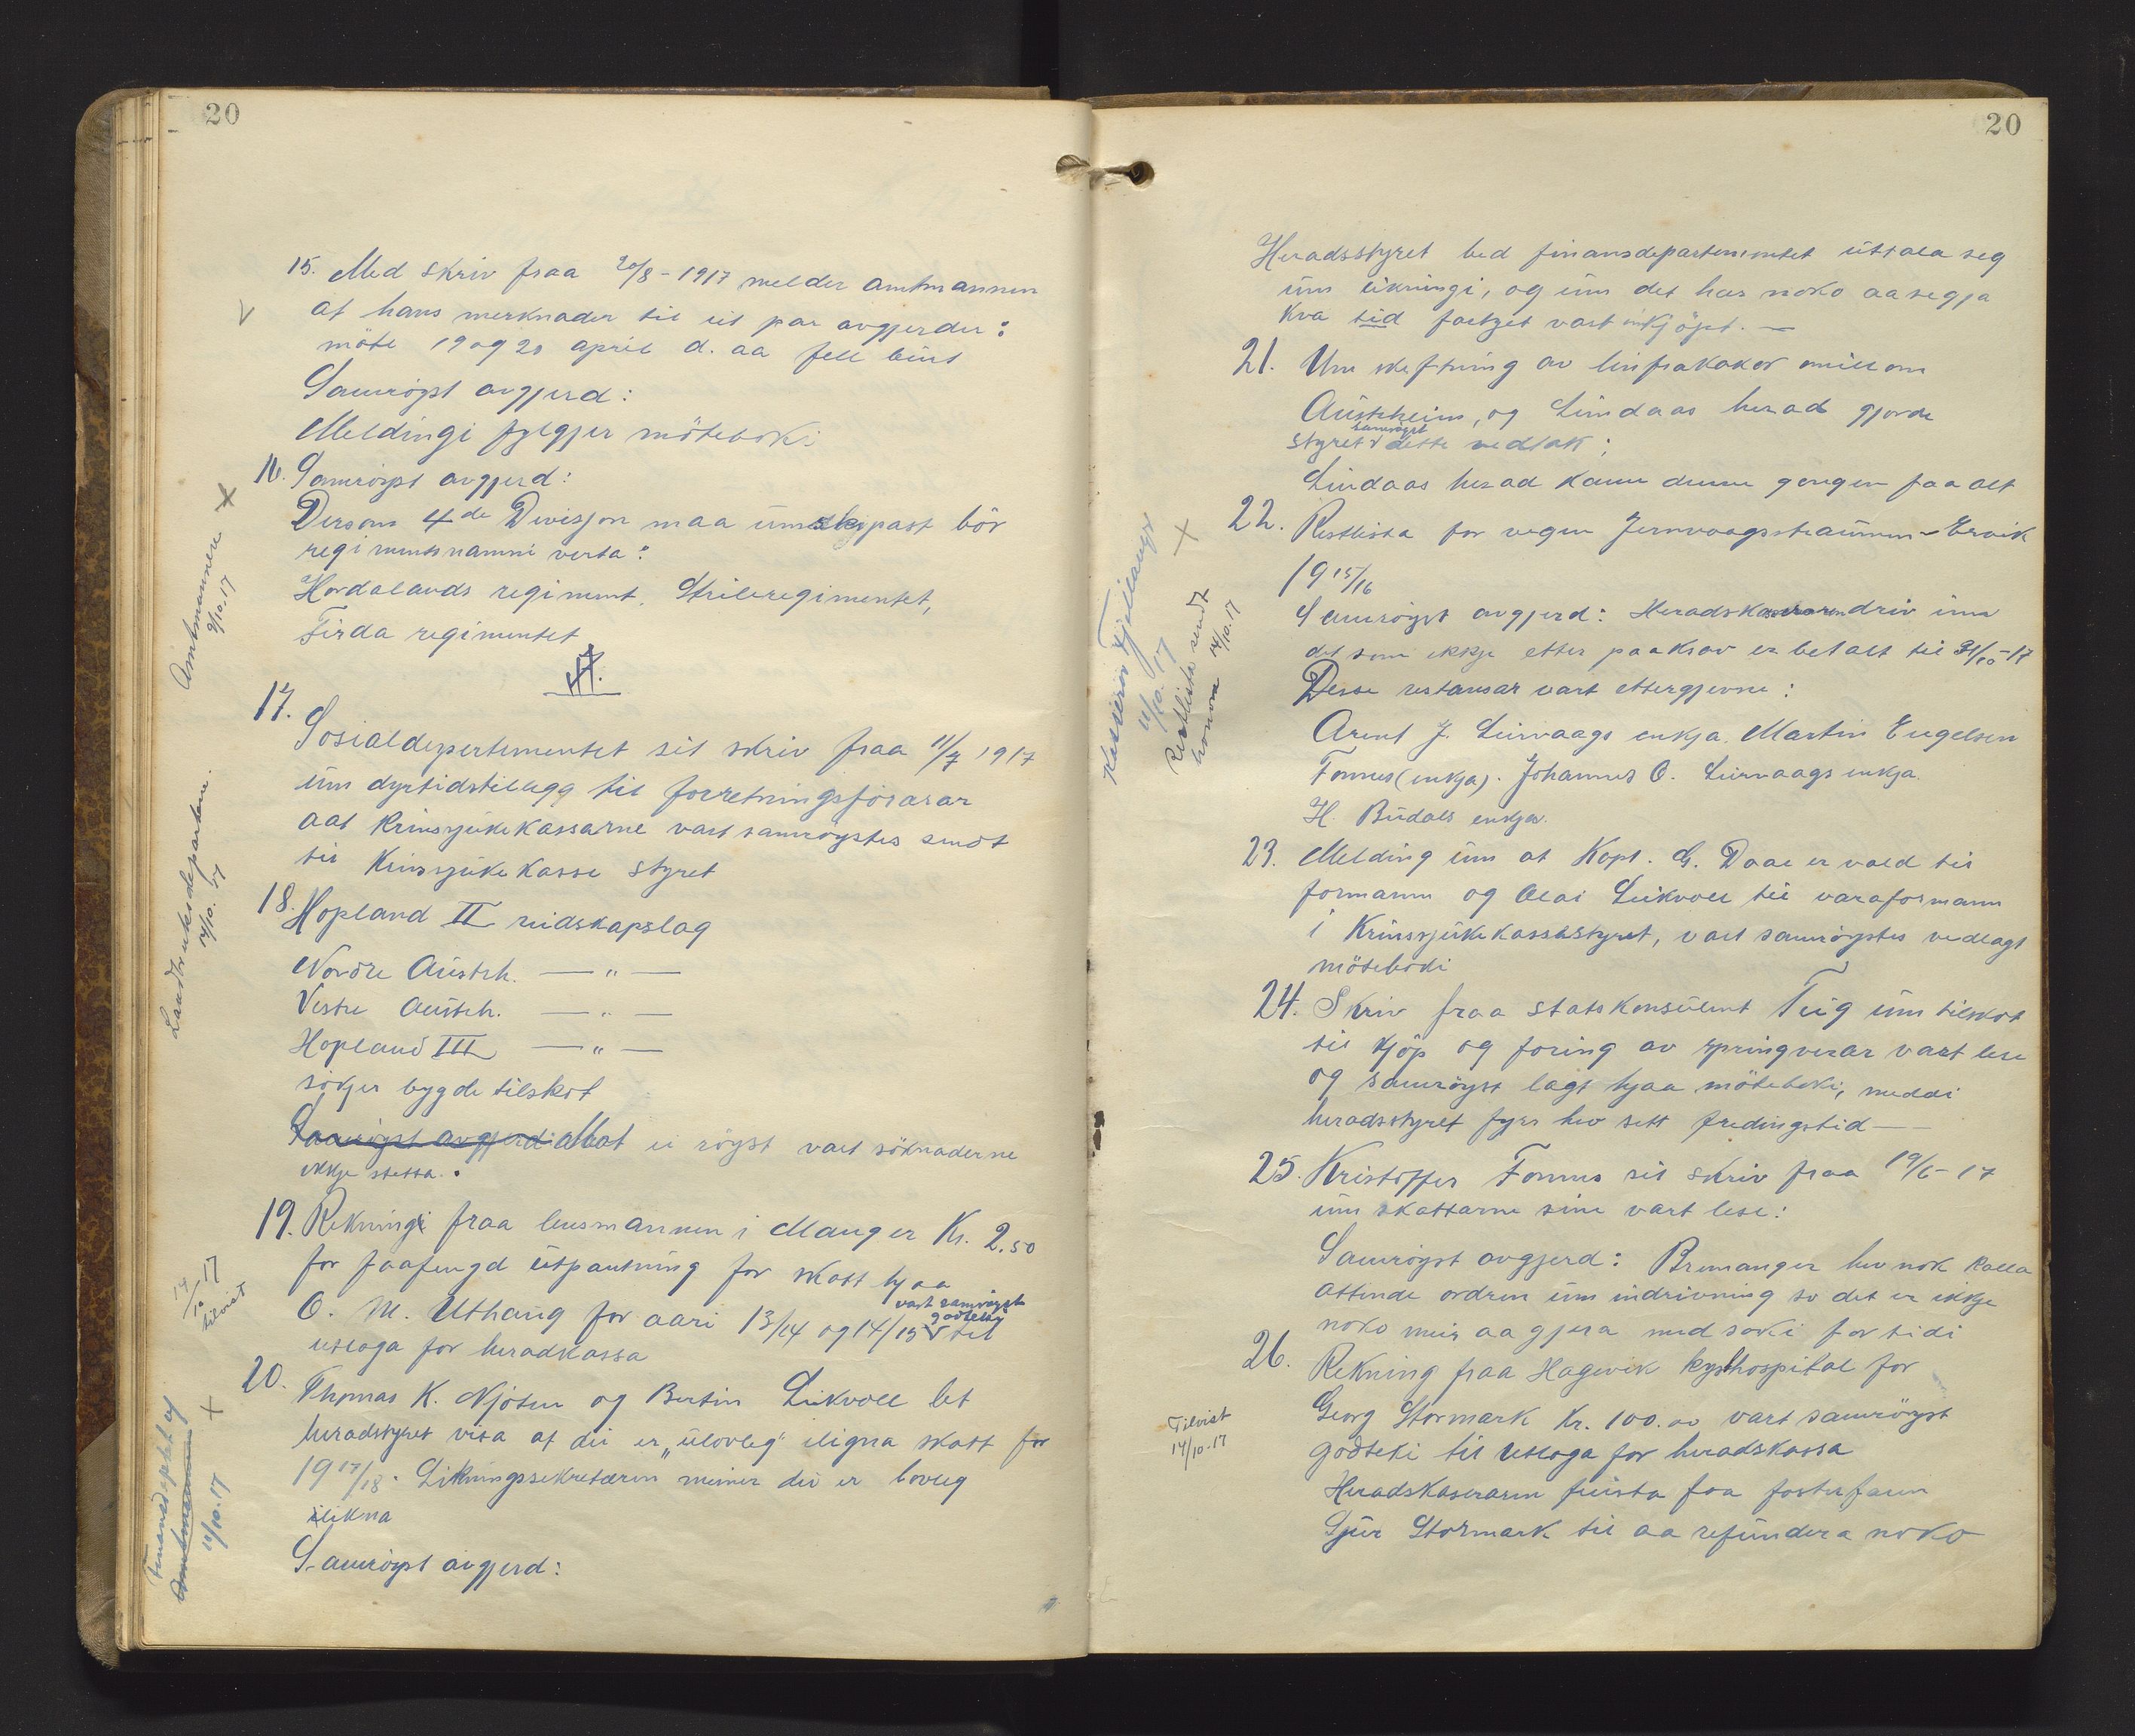 20
15. Med skriv fraa 20/8-1917 melder amtmannen
at hans merknader til eit par avgjerder:
möte 19 og 20 april d. aa fell burt
Samröyst avgjerd:
Meldingi fylgjer möteboki
16. Samröyst avgjerd:
Dersom 4de Divisjon maa umskipast bör
regimentsnamni verta:
Hordalands regiment, Strileregimentet,
Firda regimentet
Amtmannen X
9/10.17
17.
Sosialdepartementet sit skriv fraa 11/7 1917
um dyrtidstillegg til forretningsförarar
aat Krinssjukekassarne vart samröystes sendt
til Krinssjukekasse styret
18. Hopland II reidskapslag
Nordre Austrh. — " —
Vestre Austrh. — " —
Hopland III — " —
sökjer bygdetilskot
Samröyst avgjerd: Mot ei röyst vart söknaderne
ikkje stetta.
Landbruksdepartem.
14/10.17
19. Rekningi fraa lensmannen i Manger Kr. 2.50
for faafengd utpantning for skatt hjaa
O. M. Uthaug for aari 13/14 og 14/15 vart samröyst godteki til
utloga for heradkassa
14/10 17
tilvist
20. Thomas K. Njöten og Bertin Leikvoll let
heradstyret vita at dei er „ulovleg" iligna skatt for
1917/18. Likningssekretæren meiner dei er lovleg
ilikna
Samröyst avgjerd:
Finansdeptet
Amtmannen X
11/10.17
20
Heradsstyret bed finansdepartementet uttala seg
um likningi, og um det har noko aa segja
kva tid fartyet vart inkjöpt. —
21. Um skeftning av linfrøkakor millom
Austrheim, og Lindaas herad gjorde
styret samröyst dette vedtak:
Lindaas herad kann denne gongen faa alt
22. Restlista for vegen Jernvaagstraumen - Ervik
1915/16
Samröyst avgjerd: Heradskasseraren driv inn
det som ikkje etter paakrav er betalt til 31/10-17
Desse restansar vart ettergjevne:
Arent J. Leirvaags enkja. Martin Engelsen
Fonnes (enkja). Johannes O. Leirvaags enkja.
H. Budals enkja.
Kasserar Kjelanger X
11/10.17
Restliste sendt
honom 14/10.17
23. Melding um at Kapt. G. Daae er vald til
formann og Olai Leikvoll til varaformann
i Krinssjukekassestyret, vart samröystes vedlagt
möteboki
24. Skriv fraa statskonsulent Teig um tilskot
til kjöp og foring av springverar vart lese
og samröyst lagt hjaa möteboki, meddi
heradsstyret fyrr hev sett fredingstid —
25. Kristoffer Fonnes sit skriv fraa 19/6-17
um skattarne sine vart lese:
Samröyst avgjerd: Bremanger hev nok kalla
attende ordren um inndrivning so det er ikkje
noko meir aa gjera med saki for tidi
26. Rekning fraa Hagevik kysthospital for
Georg Stormark Kr. 100.00 vart samröyst
godteki til utloga for heradskassa
Heradskaseraren freista faa fosterfaren
Sjur Stormark til aa refundera noko
Tilvist
14/10.17